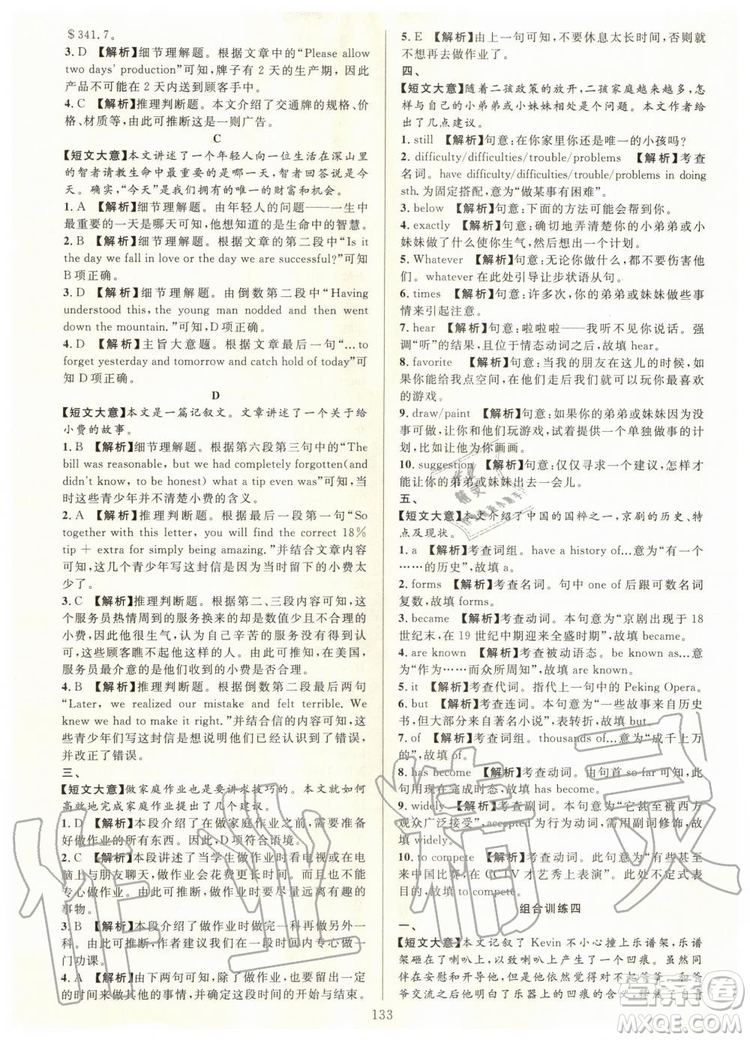 ＄341.7。
3. D 【解析】细节理解题。根据文章中的"Please allow
two days' production"可知，牌子有 2 天的生产期，因此
产品不可能在 2 天以内送到顾客手中。
4. C 【解析】推理判断题。本文介绍了交通牌的规格、价
格、材质等，由此可推断是一则广告。
C
【短文大意】本文讲述了一个年轻人向一位生活在深山里
的智者请教生命中最重要的一天是哪天，智者回答说是今
天。确实，“今天”是我们拥有的唯一的财富和机会。
1. A 【解析】细节理解题。由年轻人的问题——一生中
最重要的一天是哪天可知，他想知道的是生命的智慧。
2. B 【解析】细节理解题。根据文章的第二段中"Is it
the day we fall in love or the day we are successful?"可知
B 项正确。
3. D 【解析】细节理解题。由倒数第二段中"Having
understood this, the young man nodded and then went
down the mountain."可知，D 项正确。
4. D 【解析】主旨大意题。根据文章的最后一句"…to
forget yesterday and tomorrow and catch hold of today"可
知 D 项正确。
D
【短文大意】本文是一篇记叙文。文章讲述了一个关于给
小费的故事。
1. B 【解析】细节理解题。根据第六段第三句中的"The
bill was reasonable, but we had completely forgotten(and
didn't know, to be honest) what a tip even was"可知，当
时这些青少年并不清楚小费的含义。
2. A 【解析】推理判断题。根据最后一段第一句"So
together with this letter, you will find the correct 18%
tip + extra for simply being amazing."并结合信的内容可
知，这几个青少年写这封信是因为他们没有给小费，而那
家餐馆的服务又很好。
3. C 【解析】推理判断题。根据第二、三段内容可知，这
名服务员热情周到的服务换来的却是数值少且不合理
的小费，因此他很生气，认为自己辛苦的服务没有得到认
可，感觉被顾客瞧不起。由此可推断出，在美国，
服务员最介意的是自己获得的小费是否合理。
4. B 【解析】细节理解题。根据倒数第二段最后两句
"Later, we realized our mistake and felt terrible. We
knew we had to make it right."并结合信的内容可知，
这些青少年们写这封信是因为他们意识到了自己的错误，
并改正了错误。
三、
【短文大意】做家庭作业是要讲求技巧的。本文就如何
高效地完成家庭作业提出了几个建议。
1. D 【解析】本段介绍了在做家庭作业之前，首先要准备
好做作业的所有东西。因此，D项符合语境。
2. C 【解析】本段讲述了当学生做作业时看电视或在电
脑上与朋友聊天，做作业会花费更多时间。因此可推断，
如果想很快完成作业，那么做作业时应尽量远离有趣的
事物。
3. B 【解析】本段介绍了做作业时要做完一科，再做另一
科。由此可推断，作者建议我们在一段时间内集中做一
门功课。
4. A 【解析】由下两句可知，本段讲述了如果在一定的
时间内要做不同的事情，你需要制定时间的开始与结束。
5. E 【解析】由上一句可知，如果你很累，你可能就
不想再去做作业了。
四、
【短文大意】随着二孩政策的放开，二孩家庭越来越多，怎
样与自己的小弟弟或小妹妹相处是个问题。本文作者给
出了几点建议。
1. still 【解析】句意：在你家里你还是唯一的小孩吗？
2. difficulty/difficulties/trouble/problems 【解析】考查
名词。have difficulty/difficulties/trouble/problems in doing
sth. 为固定搭配，意为“做某事有困难”。
3. below 【解析】句意：下面的方法可能会帮到你。
4. exactly 【解析】句意：确切地弄清楚你的小弟弟或小
妹妹做了什么事使你心烦，然后创造一个计划。
5. Whatever 【解析】句意：无论你做什么，都不要伤害他
们！whatever 在此处引导让步状语从句。
6. times 【解析】句意：许多次，你的弟弟或妹妹做这些事
情来引起你的关注。
7. hear 【解析】句意：啦啦啦——我听不到你说话！强
调“听”的结果，且位于情态动词之后，故填 hear。
8. favorite 【解析】句意：当我的朋友在这儿的时候，如
果你能给我点空间，在他们离开之后，我们就可以玩你最喜欢
的游戏。
9. draw/paint 【解析】句意：如果你的弟弟或妹妹总是
想要和你和他们玩游戏，试着计划一个
单独做的事情，例如为他们画画。
10. suggestion 【解析】句意：仅仅寻求一个建议，不要真
正地让你的弟弟或妹妹出去一会儿。
五、
【短文大意】本文介绍了中国的国粹之一，京剧的历史、特
点及现状。
1. a 【解析】考查词组。have a history of…意为“有……
的历史”，故填 a。
2. forms 【解析】考查名词。句中 one of 后跟可数名词
复数，故填 forms。
3. became 【解析】考查动词。本句意为“京剧出现于 18
世纪末，在 19 世纪中期迎来繁盛”，故填 became。
4. are known 【解析】考查被动语态。be known as…意
为“作为……而众所周知”，故填 are known。
5. it 【解析】考查代词。指代上一句中的 Peking Opera。
6. but 【解析】考查连词。本句意为“一些故事来自历史
书，但大多数来自文学作品”，表转折，故填 but。
7. of 【解析】考查词组。thousands of…意为“成千上
万的”，故填 of。
8. has become 【解析】考查动词。由前面的 so far 可知，此
句用现在完成时态，故填 has become。
9. widely 【解析】考查副词。本句意为“它甚至被西方
观众广泛接受”，accepted 为动词，应用副词来修饰，故填
widely。
10. to compete 【解析】考查动词。本句意为“来自全
国的选手在 CCTV 才艺秀上表演”，此处用不定式表
目的，故填 to compete。
组合训练四
一、
【短文大意】本文记叙了 Kevin 不小心撞上乐谱架，乐谱
架砸在了一把大提琴上，大提琴出现了凹痕。虽然同
伴在安慰和开导他，但他依然很内疚，
爷交流之后，明白了乐器上的凹痕的含义
133
作业精灵